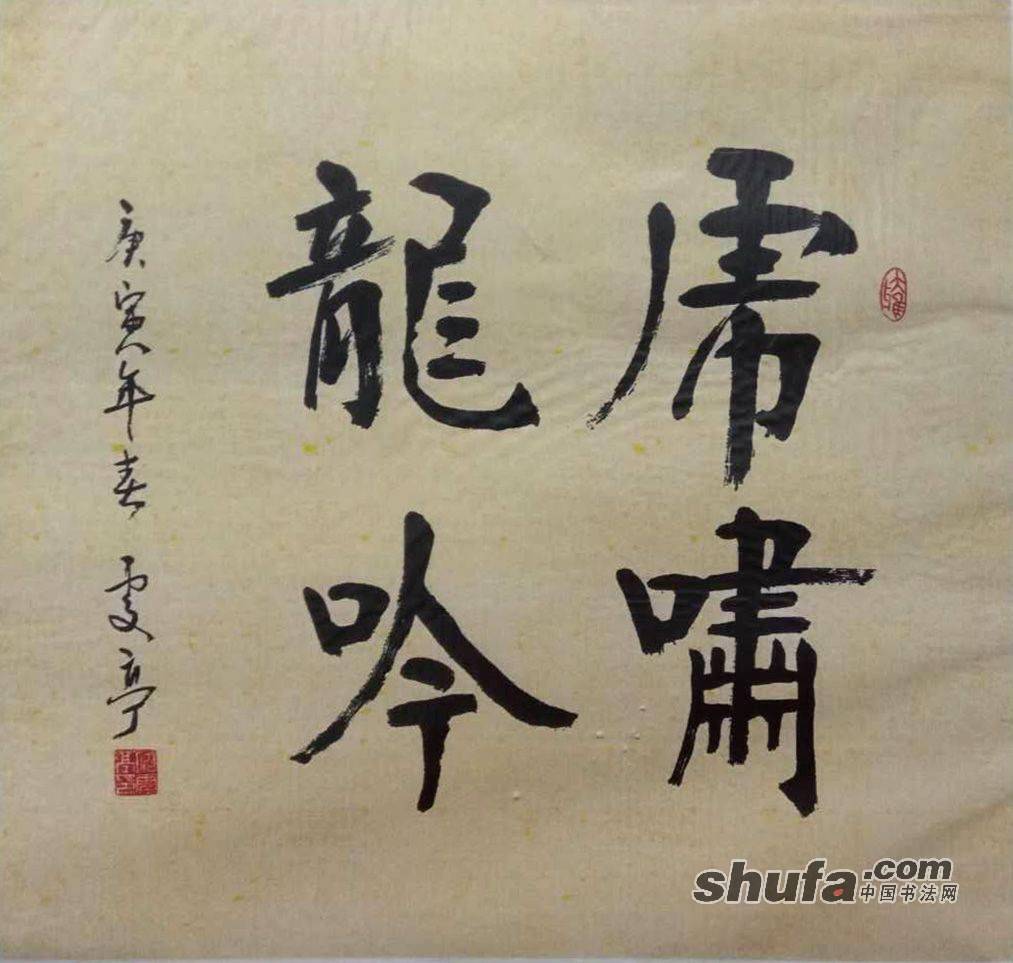 虎嘯
龍吟
庚寅年春 雯亭
shufa.com
中国书法网